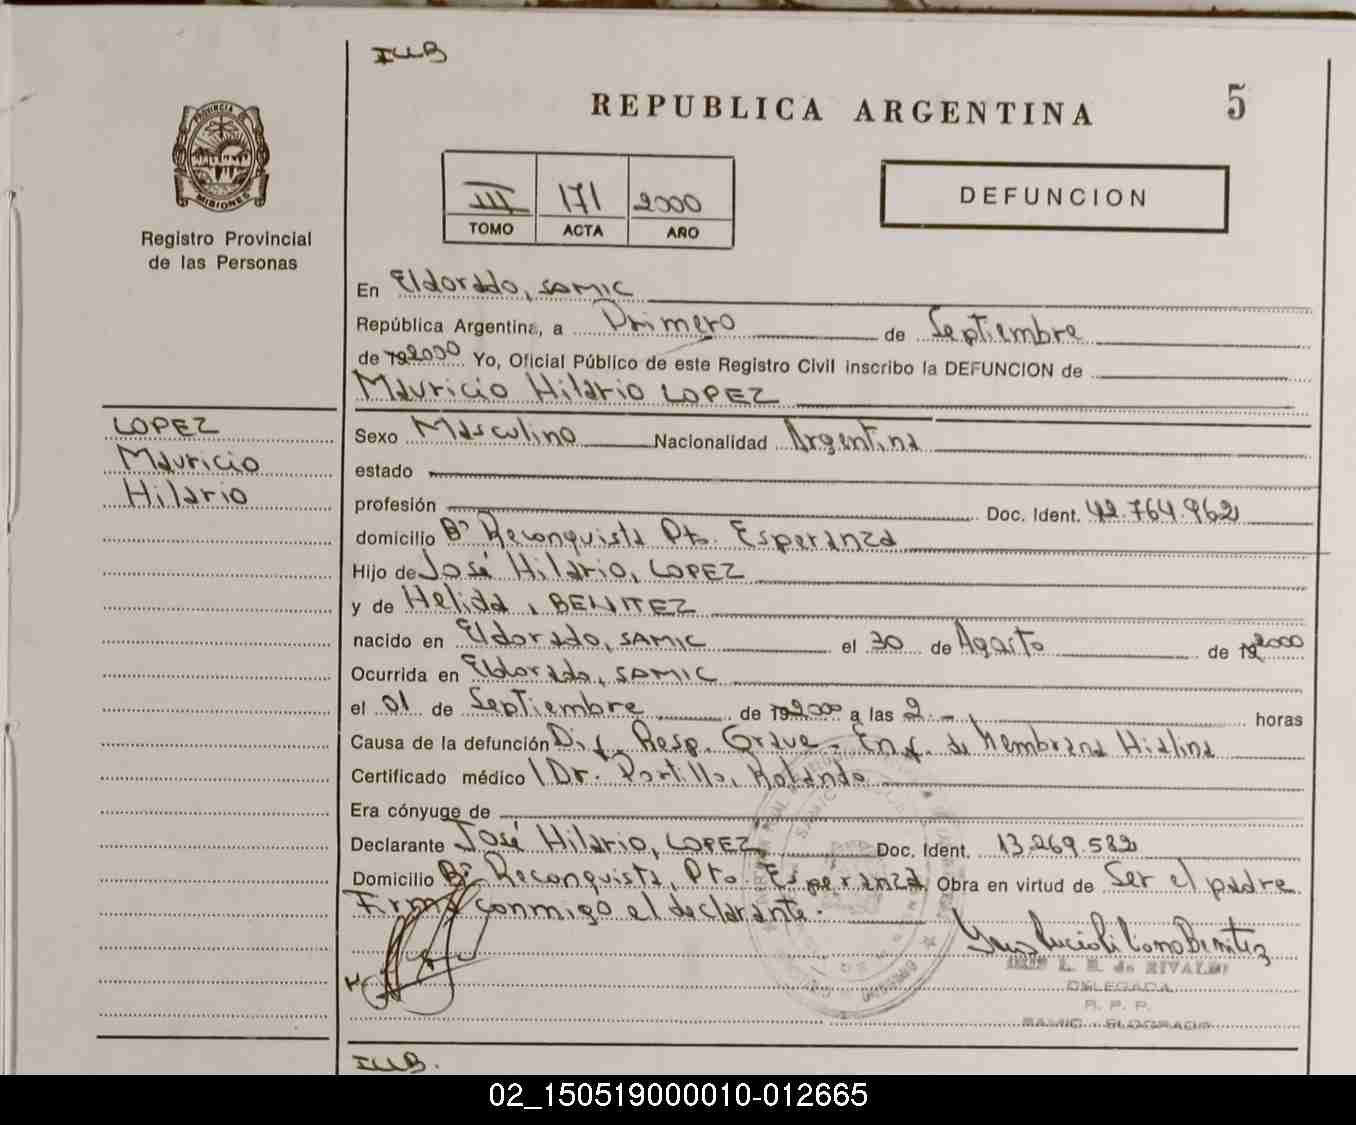 IUB
REPUBLICA ARGENTINA
5
PROVINCIA DE
MISIONES
Registro Provincial
de las Personas
III 171 2000
TOMO ACTA AÑO
DEFUNCION
En Eldorado, SAMIC
República Argentina, a Primero de Septiembre
de 192000 Yo, Oficial Público de este Registro Civil inscribo la DEFUNCION de
Mauricio Hilario LOPEZ
LOPEZ
Mauricio
Hilario
Sexo Masculino Nacionalidad Argentina
estado
profesión Doc. Ident. 42.764.962
domicilio Bº Reconquista Pto. Esperanza
Hijo de José Hilario, LOPEZ
y de Helida, BENITEZ
nacido en Eldorado, SAMIC el 30 de Agosto de 192000
Ocurrida en Eldorado, SAMIC
el 01 de Septiembre de 192000 a las 2.- horas
Causa de la defunción Dif. Resp. Grave - Enf. de Membrana Hialina
Certificado médico Dr. Portillo, Rolando
Era cónyuge de
Declarante José Hilario, LOPEZ Doc. Ident. 13.269.582
Domicilio Bº Reconquista, Pto. Esperanza Obra en virtud de Ser el padre
Firma conmigo el declarante.
DELEGADA
R. P. P.
SAMIC - ELDORADO
IUB.
02_150519000010-012665